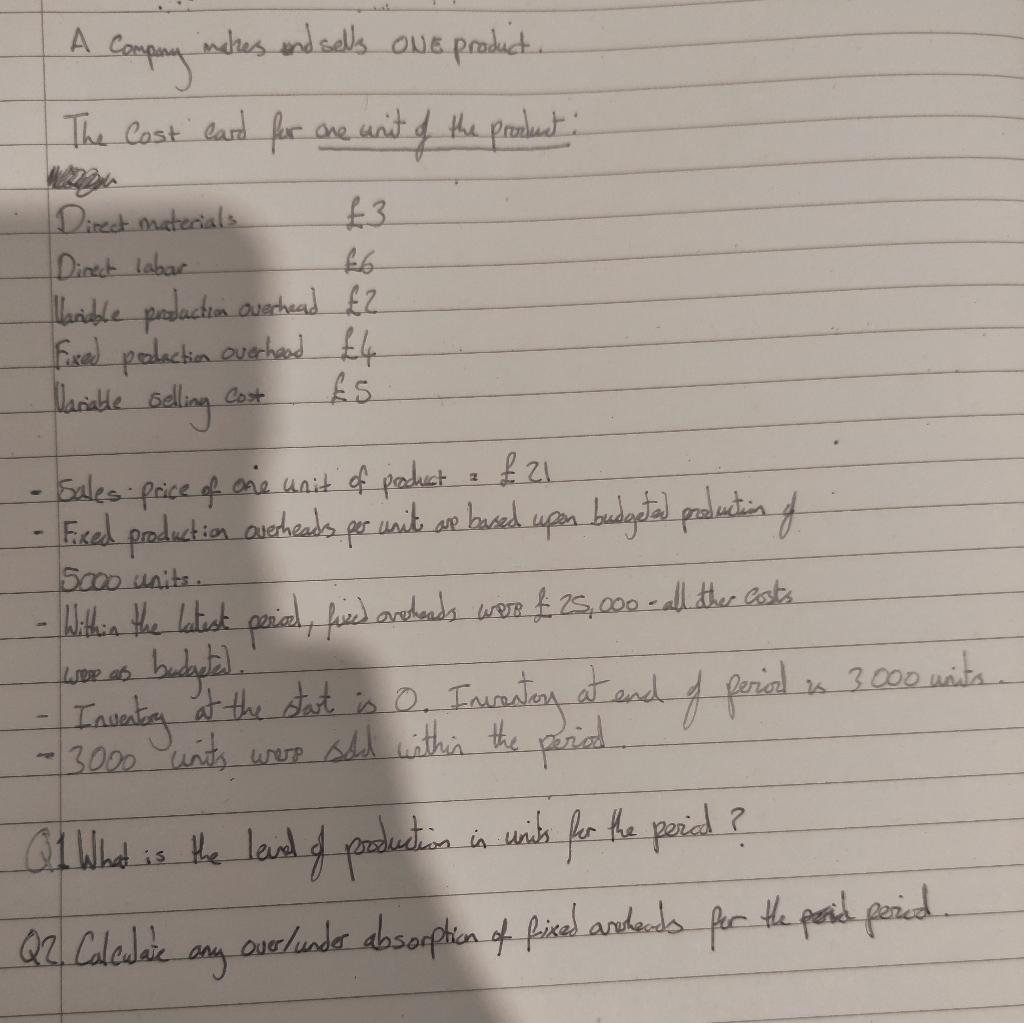 A Company makes and sells ONE product.
The Cost Card for one unit of the product:
Direct materials £3
Direct labour £6
Variable production overhead £2
Fixed production overhead £4
Variable selling cost £5
- Sales price of one unit of product = £21
- Fixed production overheads per unit are based upon budgeted production of
5000 units.
- Within the latest period, fixed overheads were £25,000 - all other costs
were as budgeted.
- Inventory at the start is 0. Inventory at end of period is 3000 units.
- 3000 units were sold within the period.
Q1 What is the level of production in units for the period?
Q2 Calculate any over/under absorption of fixed overheads for the period.